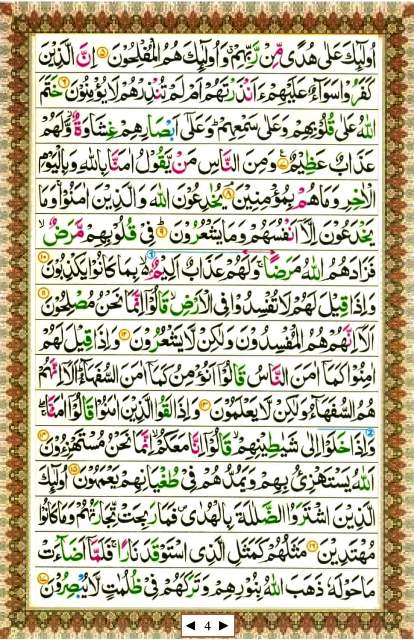 اُولٰٓئِكَ عَلٰى هُدًى مِّنْ رَّبِّهِمْ ۙ وَاُولٰٓئِكَ هُمُ الْمُفْلِحُوْنَ ۝۵ اِنَّ الَّذِيْنَ
كَفَرُوْا سَوَآءٌ عَلَيْهِمْ ءَاَنْذَرْتَهُمْ اَمْ لَمْ تُنْذِرْهُمْ لَا يُؤْمِنُوْنَ ۝۶ خَتَمَ
اللّٰهُ عَلٰى قُلُوْبِهِمْ وَعَلٰى سَمْعِهِمْ ؕ وَعَلٰٓى اَبْصَارِهِمْ غِشَاوَةٌ ۫ وَّلَهُمْ
عَذَابٌ عَظِيْمٌ ۝۷ وَمِنَ النَّاسِ مَنْ يَّقُوْلُ اٰمَنَّا بِاللّٰهِ وَبِالْيَوْمِ
الْاٰخِرِ وَمَا هُمْ بِمُؤْمِنِيْنَ ۝۸ يُخٰدِعُوْنَ اللّٰهَ وَالَّذِيْنَ اٰمَنُوْا ۚ وَمَا
يَخْدَعُوْنَ اِلَّآ اَنْفُسَهُمْ وَمَا يَشْعُرُوْنَ ۝۹ فِىْ قُلُوْبِهِمْ مَّرَضٌ ۙ
فَزَادَهُمُ اللّٰهُ مَرَضًا ۚ وَلَهُمْ عَذَابٌ اَلِيْمٌۢ ۙ بِمَا كَانُوْا يَكْذِبُوْنَ ۝۱۰
وَاِذَا قِيْلَ لَهُمْ لَا تُفْسِدُوْا فِى الْاَرْضِ ۙ قَالُوْٓا اِنَّمَا نَحْنُ مُصْلِحُوْنَ ۝۱۱
اَلَآ اِنَّهُمْ هُمُ الْمُفْسِدُوْنَ وَلٰكِنْ لَّا يَشْعُرُوْنَ ۝۱۲ وَاِذَا قِيْلَ لَهُمْ
اٰمِنُوْا كَمَآ اٰمَنَ النَّاسُ قَالُوْٓا اَنُؤْمِنُ كَمَآ اٰمَنَ السُّفَهَآءُ ؕ اَلَآ اِنَّهُمْ
هُمُ السُّفَهَآءُ وَلٰكِنْ لَّا يَعْلَمُوْنَ ۝۱۳ وَاِذَا لَقُوا الَّذِيْنَ اٰمَنُوْا قَالُوْٓا اٰمَنَّا ۖۚ
وَاِذَا خَلَوْا اِلٰى شَيٰطِيْنِهِمْ ۙ قَالُوْٓا اِنَّا مَعَكُمْ ۙ اِنَّمَا نَحْنُ مُسْتَهْزِءُوْنَ ۝۱۴
اَللّٰهُ يَسْتَهْزِئُ بِهِمْ وَيَمُدُّهُمْ فِىْ طُغْيَانِهِمْ يَعْمَهُوْنَ ۝۱۵ اُولٰٓئِكَ
الَّذِيْنَ اشْتَرَوُا الضَّلٰلَةَ بِالْهُدٰى ۪ فَمَا رَبِحَتْ تِّجَارَتُهُمْ وَمَا كَانُوْا
مُهْتَدِيْنَ ۝۱۶ مَثَلُهُمْ كَمَثَلِ الَّذِى اسْتَوْقَدَ نَارًا ۚ فَلَمَّآ اَضَآءَتْ
مَا حَوْلَهٗ ذَهَبَ اللّٰهُ بِنُوْرِهِمْ وَتَرَكَهُمْ فِىْ ظُلُمٰتٍ لَّا يُبْصِرُوْنَ ۝۱۷
◄ 4 ►